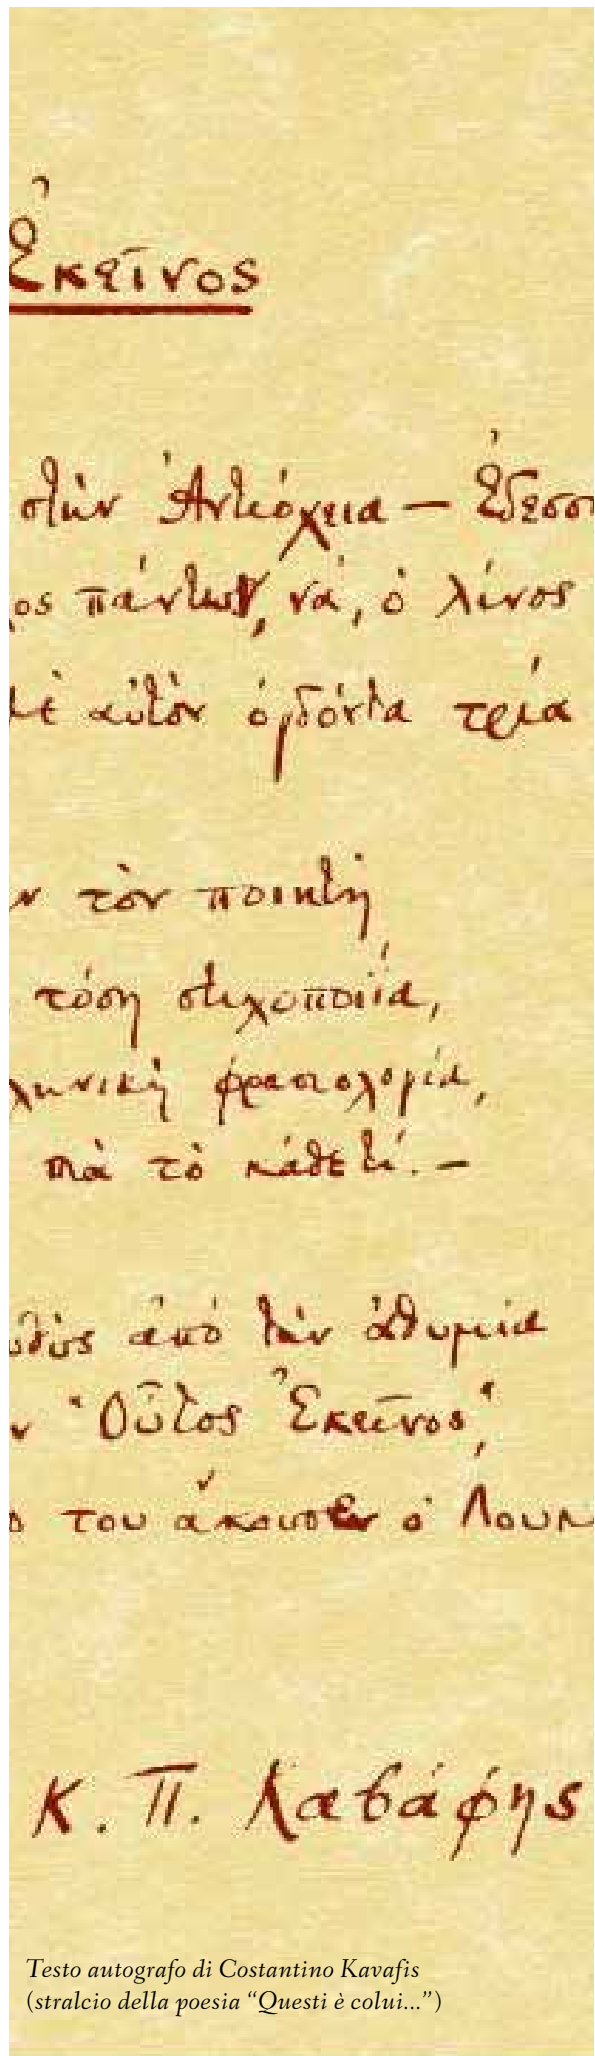 Ἐκεῖνος
στὴν Ἀντιόχεια — Ἐδεσσ
ος πάντων, νά, ὁ λίνος
μὲ αὐτὸν ὀγδόντα τρία
ν τὸν ποιητὴ
τόση στιχοποιΐα,
ληνικὴ φρασιολογία,
πιὰ τὸ κάθε τί. —
υθὺς ἀπὸ τὴν ἀθυμία
ν “Οὗτος Ἐκεῖνος”,
ο του ἄκουσεν ὁ Λουκ
Κ. Π. Καβάφης
Testo autografo di Costantino Kavafis
(stralcio della poesia “Questi è colui...”)